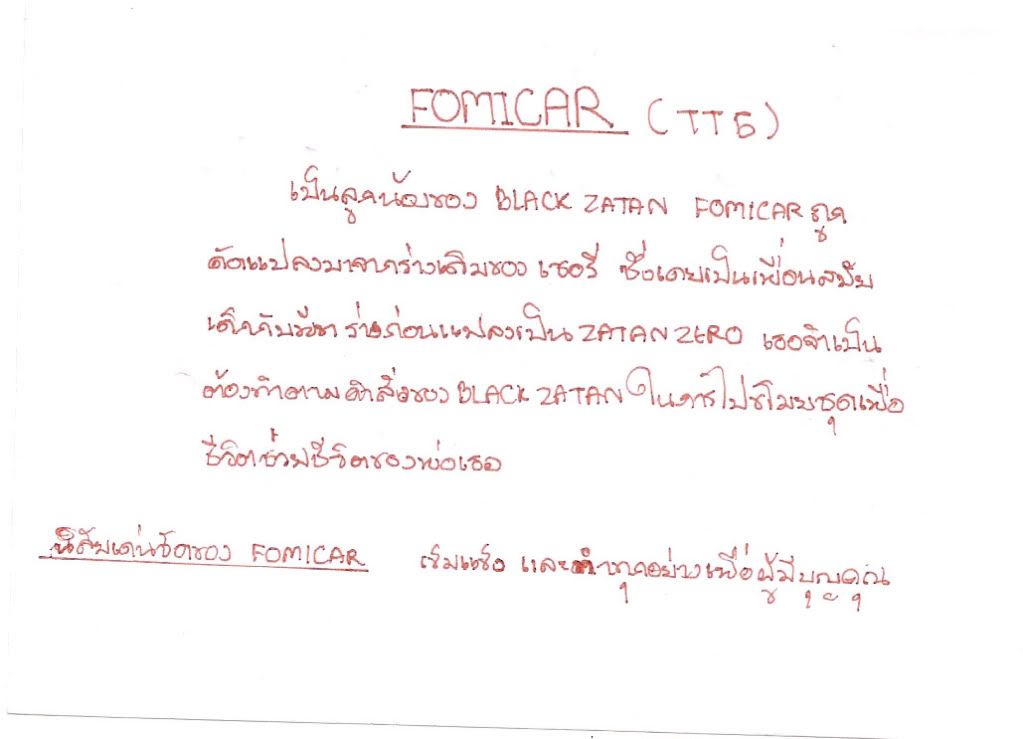 FOMICAR (TT5)
เป็นลูกน้องของ BLACK ZATAN FOMICAR ถูก
ดัดแปลงมาจากร่างเดิมของ เชอรี่ ซึ่งเคยเป็นเพื่อนสมัย
เด็กกับ ร่างก่อนแปลงเป็น ZATAN ZERO เธอจำเป็น
ต้องทำตามคำสั่งของ BLACK ZATAN ในการไปขโมยชุดเพื่อ
ชีวิตช่วยชีวิตของพ่อเธอ
นิสัยเด่นชัดของ FOMICAR เข้มแข็ง และทำทุกอย่างเพื่อผู้มีบุญคุณ